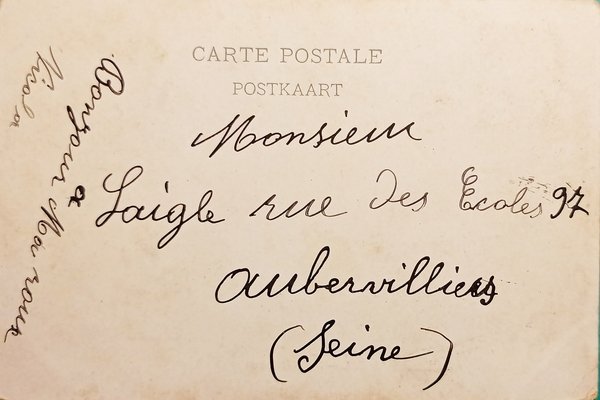 CARTE POSTALE
POSTKAART
Monsieur
Laigle rue des Ecoles 97
Aubervilliers
(Seine)
Bonjour a
Nicolas